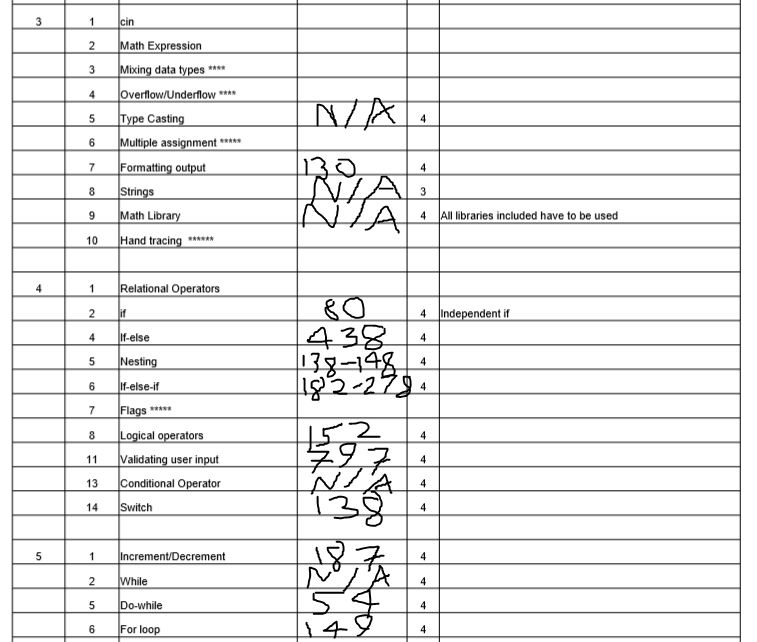 3 1 cin
2 Math Expression
3 Mixing data types ****
4 Overflow/Underflow ****
5 Type Casting N/A 4
6 Multiple assignment *****
7 Formatting output 130 4
8 Strings N/A 3
9 Math Library N/A 4 All libraries included have to be used
10 Hand tracing ******
4 1 Relational Operators
2 if 80 4 Independent if
4 If-else 438 4
5 Nesting 138-148 4
6 If-else-if 182-278 4
7 Flags *****
8 Logical operators 152 4
11 Validating user input 797 4
13 Conditional Operator N/A 4
14 Switch 138 4
5 1 Increment/Decrement 187 4
2 While N/A 4
5 Do-while 54 4
6 For loop 149 4